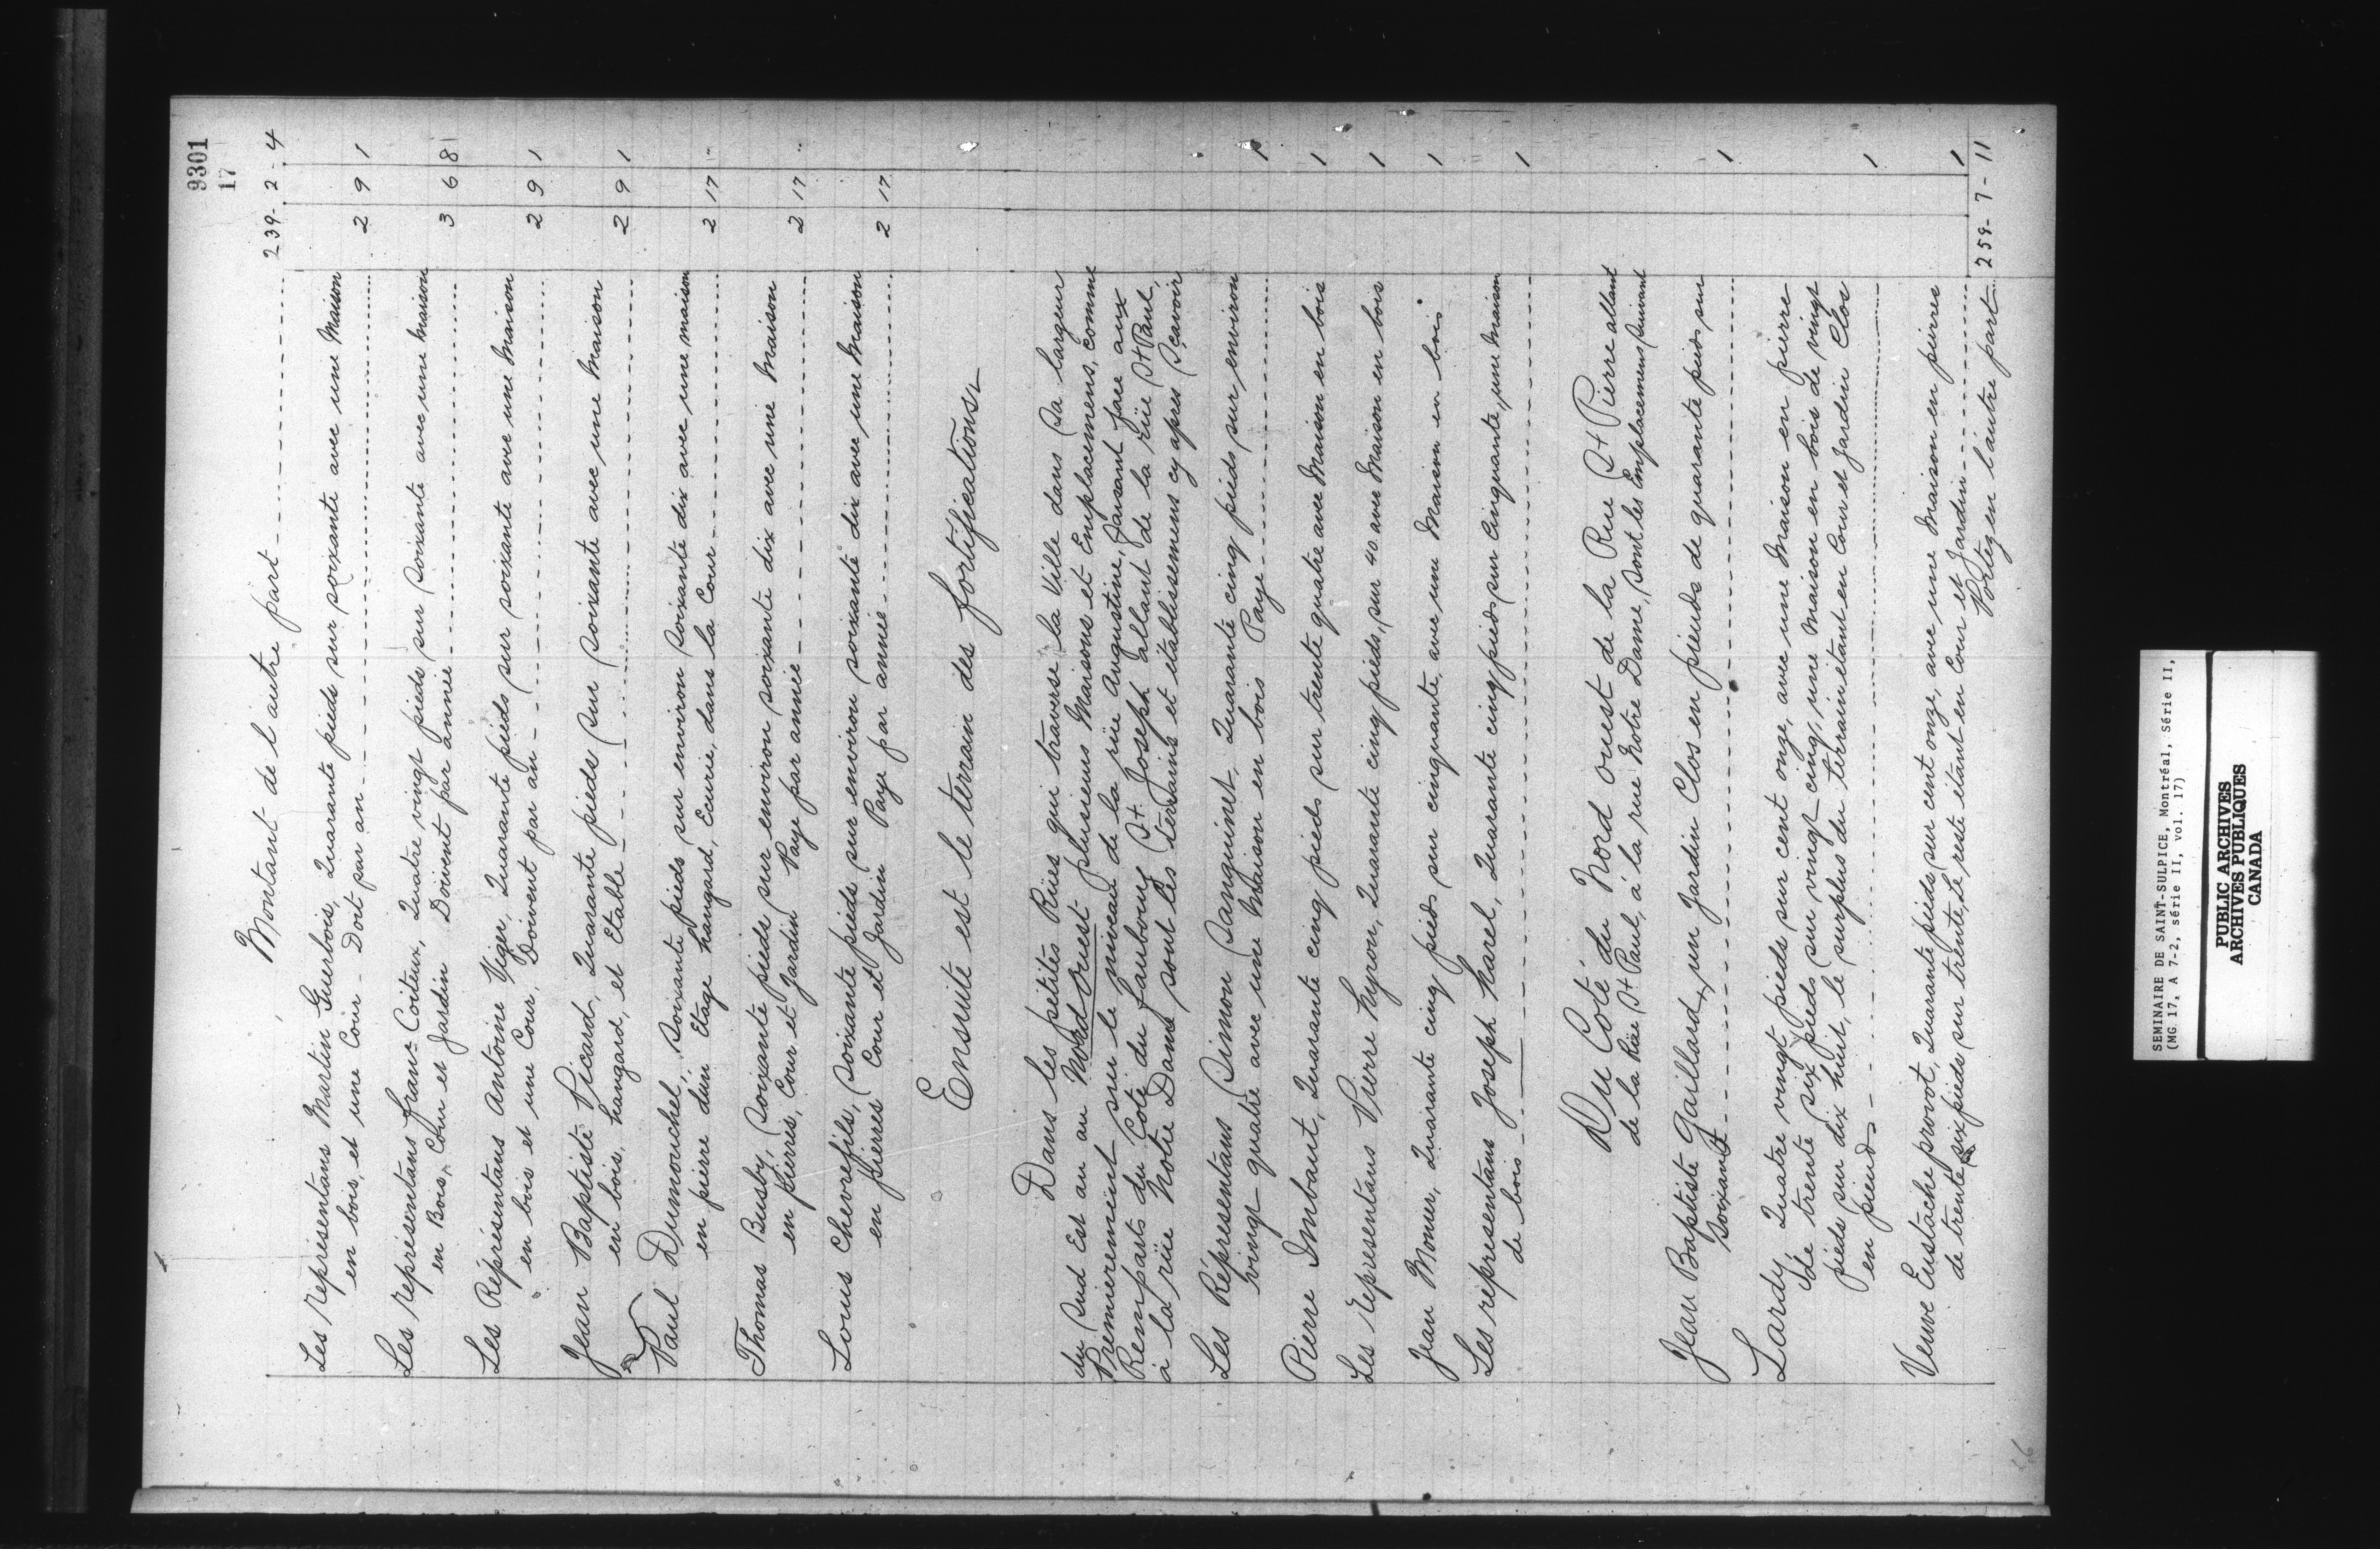 9301
17
Montant de l'autre part 239 - 2 - 4
Les représentans Martin Guerbois, Quarante pieds sur soixante avec une Maison
en bois, et une Cour - Doit par an 2 9 1
Les représentans franc- Coiteux, Quatre vingt pieds sur soixante avec une Maison
en Bois, Cour et Jardin Doivent par année 3 6 8
Les Réprésentans Antoine Viger, Quarante pieds sur soixante avec une Maison
en bois et une Cour, Doivent par an 2 9 1
Jean Baptiste Picard, Quarante pieds sur soixante avec une Maison
en bois, hangard, et Etable 2 9 1
Paul Dumouchel, Soixante pieds sur environ soixante dix avec une maison
en pierre d'un Etage hangard, Ecurie, dans la Cour 2 17 "
Thomas Busby, Soixante pieds sur environ soixante dix avec une Maison
en pierres, Cour et Jardin Paye par année 2 17 "
Louis Chevrefils, Soixante pieds sur environ soixante dix avec une Maison
en pierres Cour et Jardin Paye par année 2 17
Ensuite est le terrain des fortifications
Dans les petites Rües qui traverse la Ville dans sa largeur
du Sud Est au au Nord Ouest plusieurs Maisons et Emplacemens, comme
Premierement sur le niveau de la rüe Augustine, faisant face aux
Remparts du Coté du faubourg St. Joseph allant de la rüe St Paul,
à la rüe Notre Dame sont les terrains et établissemens cy apres Scavoir
Les Réprésentans Simon Sanguinet, Quarante cinq pieds sur environ
vingt quatre avec une Maison en bois Paye 1
Pierre Imbaut, Quarante cinq pieds sur trente quatre avec Maison en bois 1
Les représentans Pierre hyron, Quarante cinq pieds, sur 40 avec Maison en bois 1
Jean Monier, Quarante cinq pieds sur cinquante, avec une Maison en bois 1
Les représentans Joseph harel, Quarante cinq pieds sur Cinquante, une Maison
de bois 1
Du Coté du Nord Ouest de la Rue St Pierre allant
de la Rüe St Paul, à la rue Notre Dame, sont les Emplacemens suivant
Jean Baptiste Gaillard, un Jardin Clos en pieuds de quarante pieds sur
Soixante 1
Lardy Quatre vingt pieds sur cent onze, avec une Maison en pierre
de trente six pieds sur vingt cinq, une Maison en bois de vingt
pieds sur dix huit, le surplus du terrain étant en Cour et Jardin Clos
en pieuds 1
Veuve Eustache provot, Quarante pieds sur cent onze, avec une Maison en pierres
de trente six pieds sur trente, le reste étant en Cour et Jardin 1
Portez en l'autre part 259 - 7 - 11
16
SEMINAIRE DE SAINT-SULPICE, Montréal, Série II,
(MG 17, A 7-2, série II, vol. 17)
PUBLIC ARCHIVES
ARCHIVES PUBLIQUES
CANADA